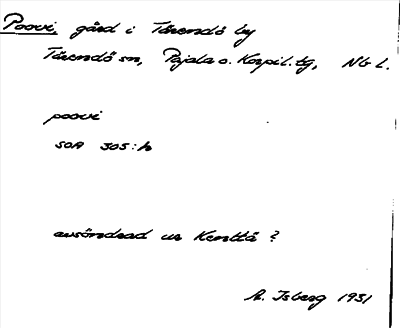 Poovi, gård i Tärendö by
Tärendö sn, Pajala o. Korpil. tg, Nb L.
poovi
SOA 305:h
avsöndrad ur Kenttä ?
A. Isberg 1931